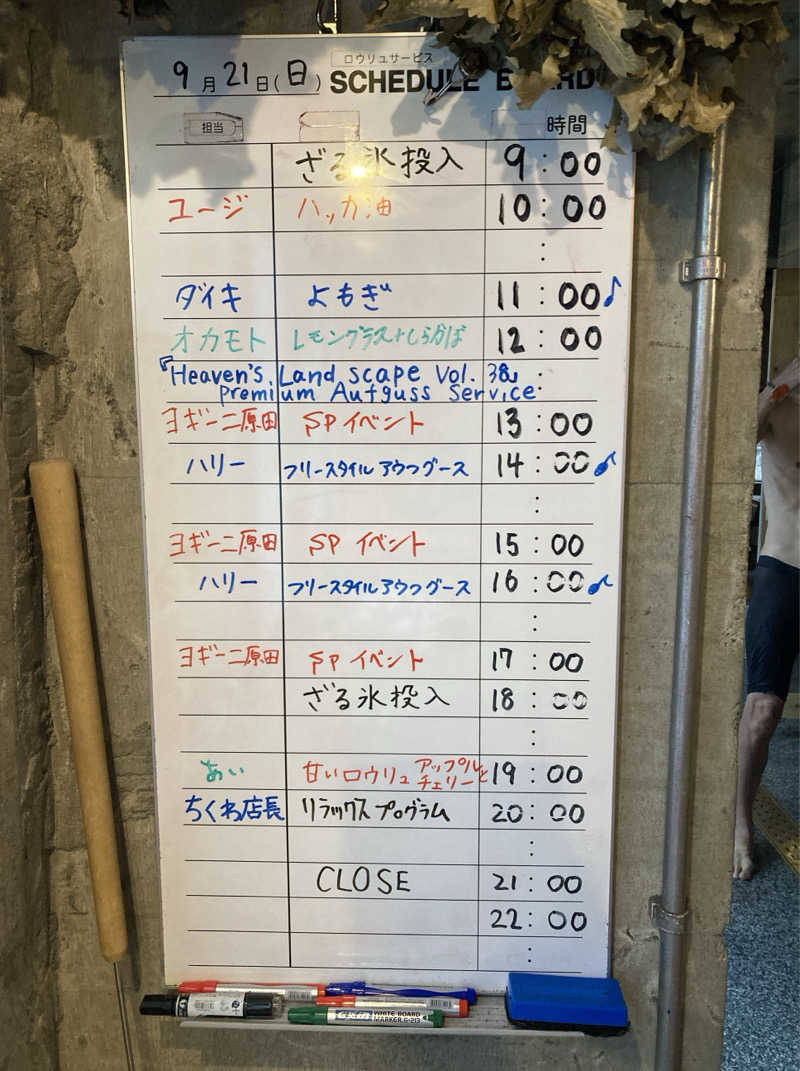 ロウリュサービス
9月21日(日) SCHEDULE BOARD
担当 時間
ざる氷投入 9:00
ユージ ハッカ油 10:00
:
ダイキ よもぎ 11:00♪
オカモト レモングラス+しらかば 12:00
『Heaven's Landscape Vol. 38』 :
Premium Aufguss Service
ヨギーニ原田 SPイベント 13:00
ハリー フリースタイルアウフグース 14:00♪
:
ヨギーニ原田 SPイベント 15:00
ハリー フリースタイルアウフグース 16:00♪
:
ヨギーニ原田 SPイベント 17:00
ざる氷投入 18:00
:
あい 甘いロウリュ アップルと 19:00
チェリー
ちくわ店長 リラックスプログラム 20:00
:
CLOSE 21:00
22:00
:
WHITE BOARD
MARKER